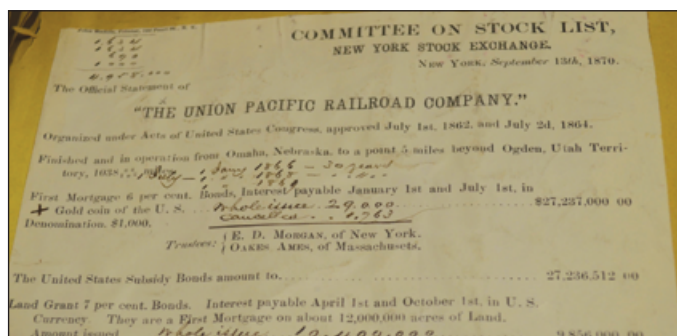 COMMITTEE ON STOCK LIST,
NEW YORK STOCK EXCHANGE.
NEW YORK, September 13th, 1870.
4.958.000
The Official Statement of
"THE UNION PACIFIC RAILROAD COMPANY."
Organized under Acts of United States Congress, approved July 1st, 1862, and July 2d, 1864.
Finished and in operation from Omaha, Nebraska, to a point 5 miles beyond Ogden, Utah Terri-
tory, 1038 July 1866 - 30 years
1868
1869
First Mortgage 6 per cent. Bonds, Interest payable January 1st and July 1st, in
Gold coin of the U. S. Whole issue 29.000 $27,237,000 00
Denomination, $1,000. cancelled 1.763
Trustees: { E. D. MORGAN, of New York.
OAKES AMES, of Massachusets.
The United States Subsidy Bonds amount to 27,236,512 00
Land Grant 7 per cent. Bonds. Interest payable April 1st and October 1st, in U. S.
Currency. They are a First Mortgage on about 12,000,000 acres of Land.
Amount issued Whole issue 9,856,000 00